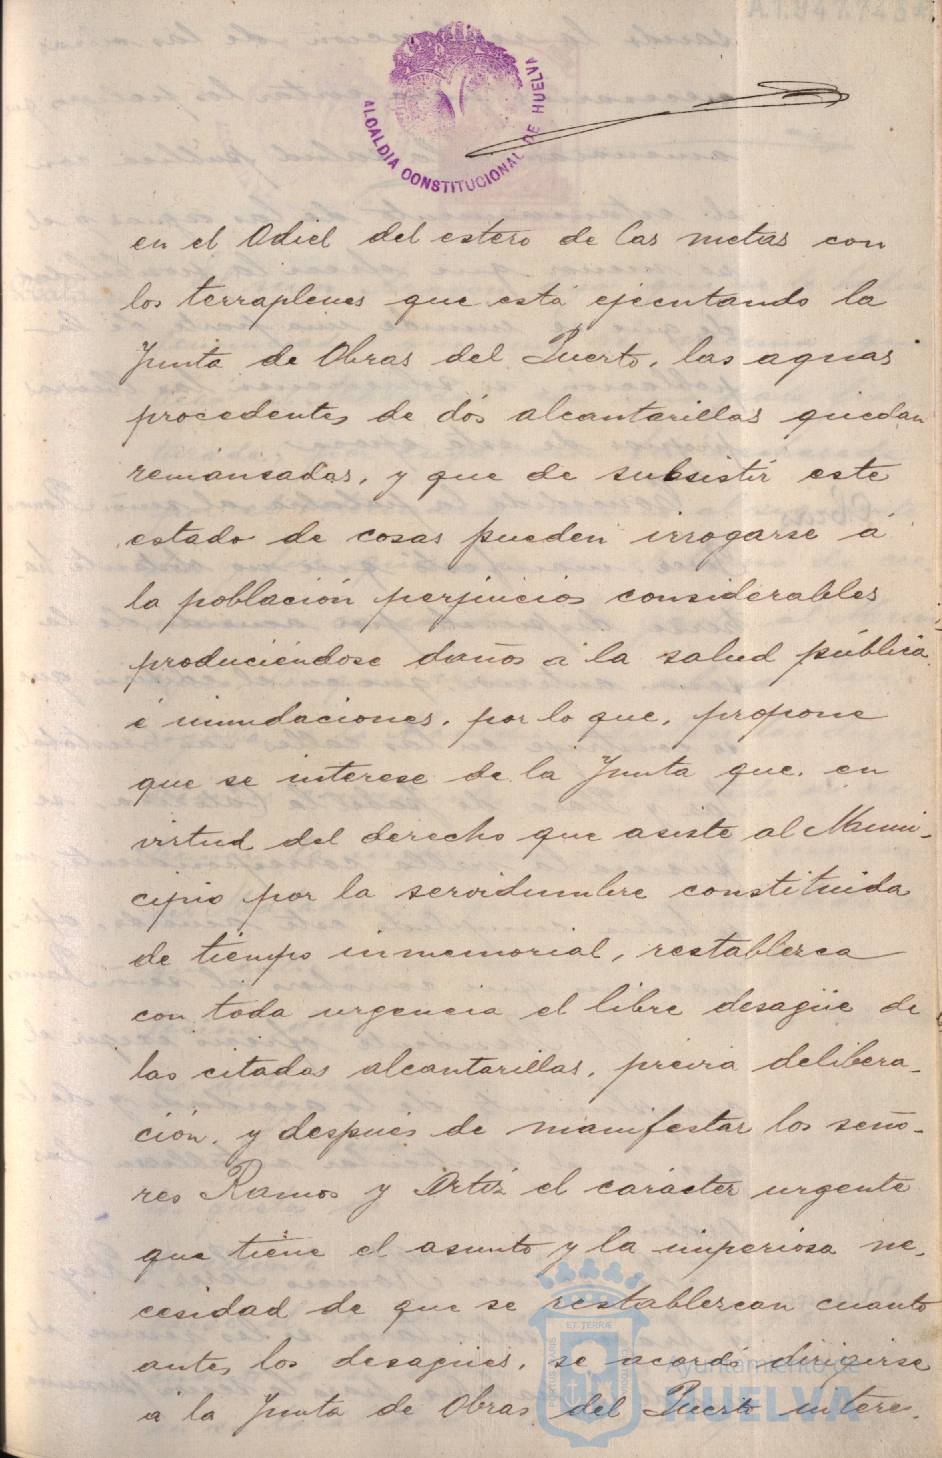 A.1.947.743
ALCALDIA CONSTITUCIONAL DE HUELVA
en el Odiel del estero de las metas con
los terraplenes que está ejecutando la
Junta de Obras del Puerto, las aguas
procedentes de dós alcantarillas quedan
remansadas, y que de subsistir este
estado de cosas pueden irrogarse á
la población perjuicios considerables
produciéndose daños á la salud pública
é inundaciones, por lo que, propone
que se interese de la Junta que, en
virtud del derecho que asiste al Muni-
cipio por la servidumbre constituida
de tiempo inmemorial, restablezca
con toda urgencia el libre desagüe de
las citadas alcantarillas, prévia delibera-
ción, y después de manifestar los seño-
res Ramos y Ortiz el carácter urgente
que tiene el asunto y la imperiosa ne-
cesidad de que se restablezcan cuanto
antes los desagües, se acordó dirigirse
á la Junta de Obras del Puerto intere-
Ayuntamiento de
HUELVA